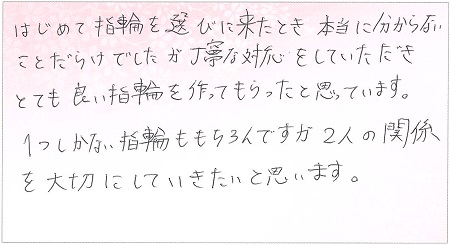 はじめて指輪を選びに来たとき 本当に分からない
ことだらけでしたが丁寧な対応をしていただき
とても良い指輪を作ってもらったと思っています。
1つしかない指輪ももちろんですが 2人の関係
を大切にしていきたいと思います。